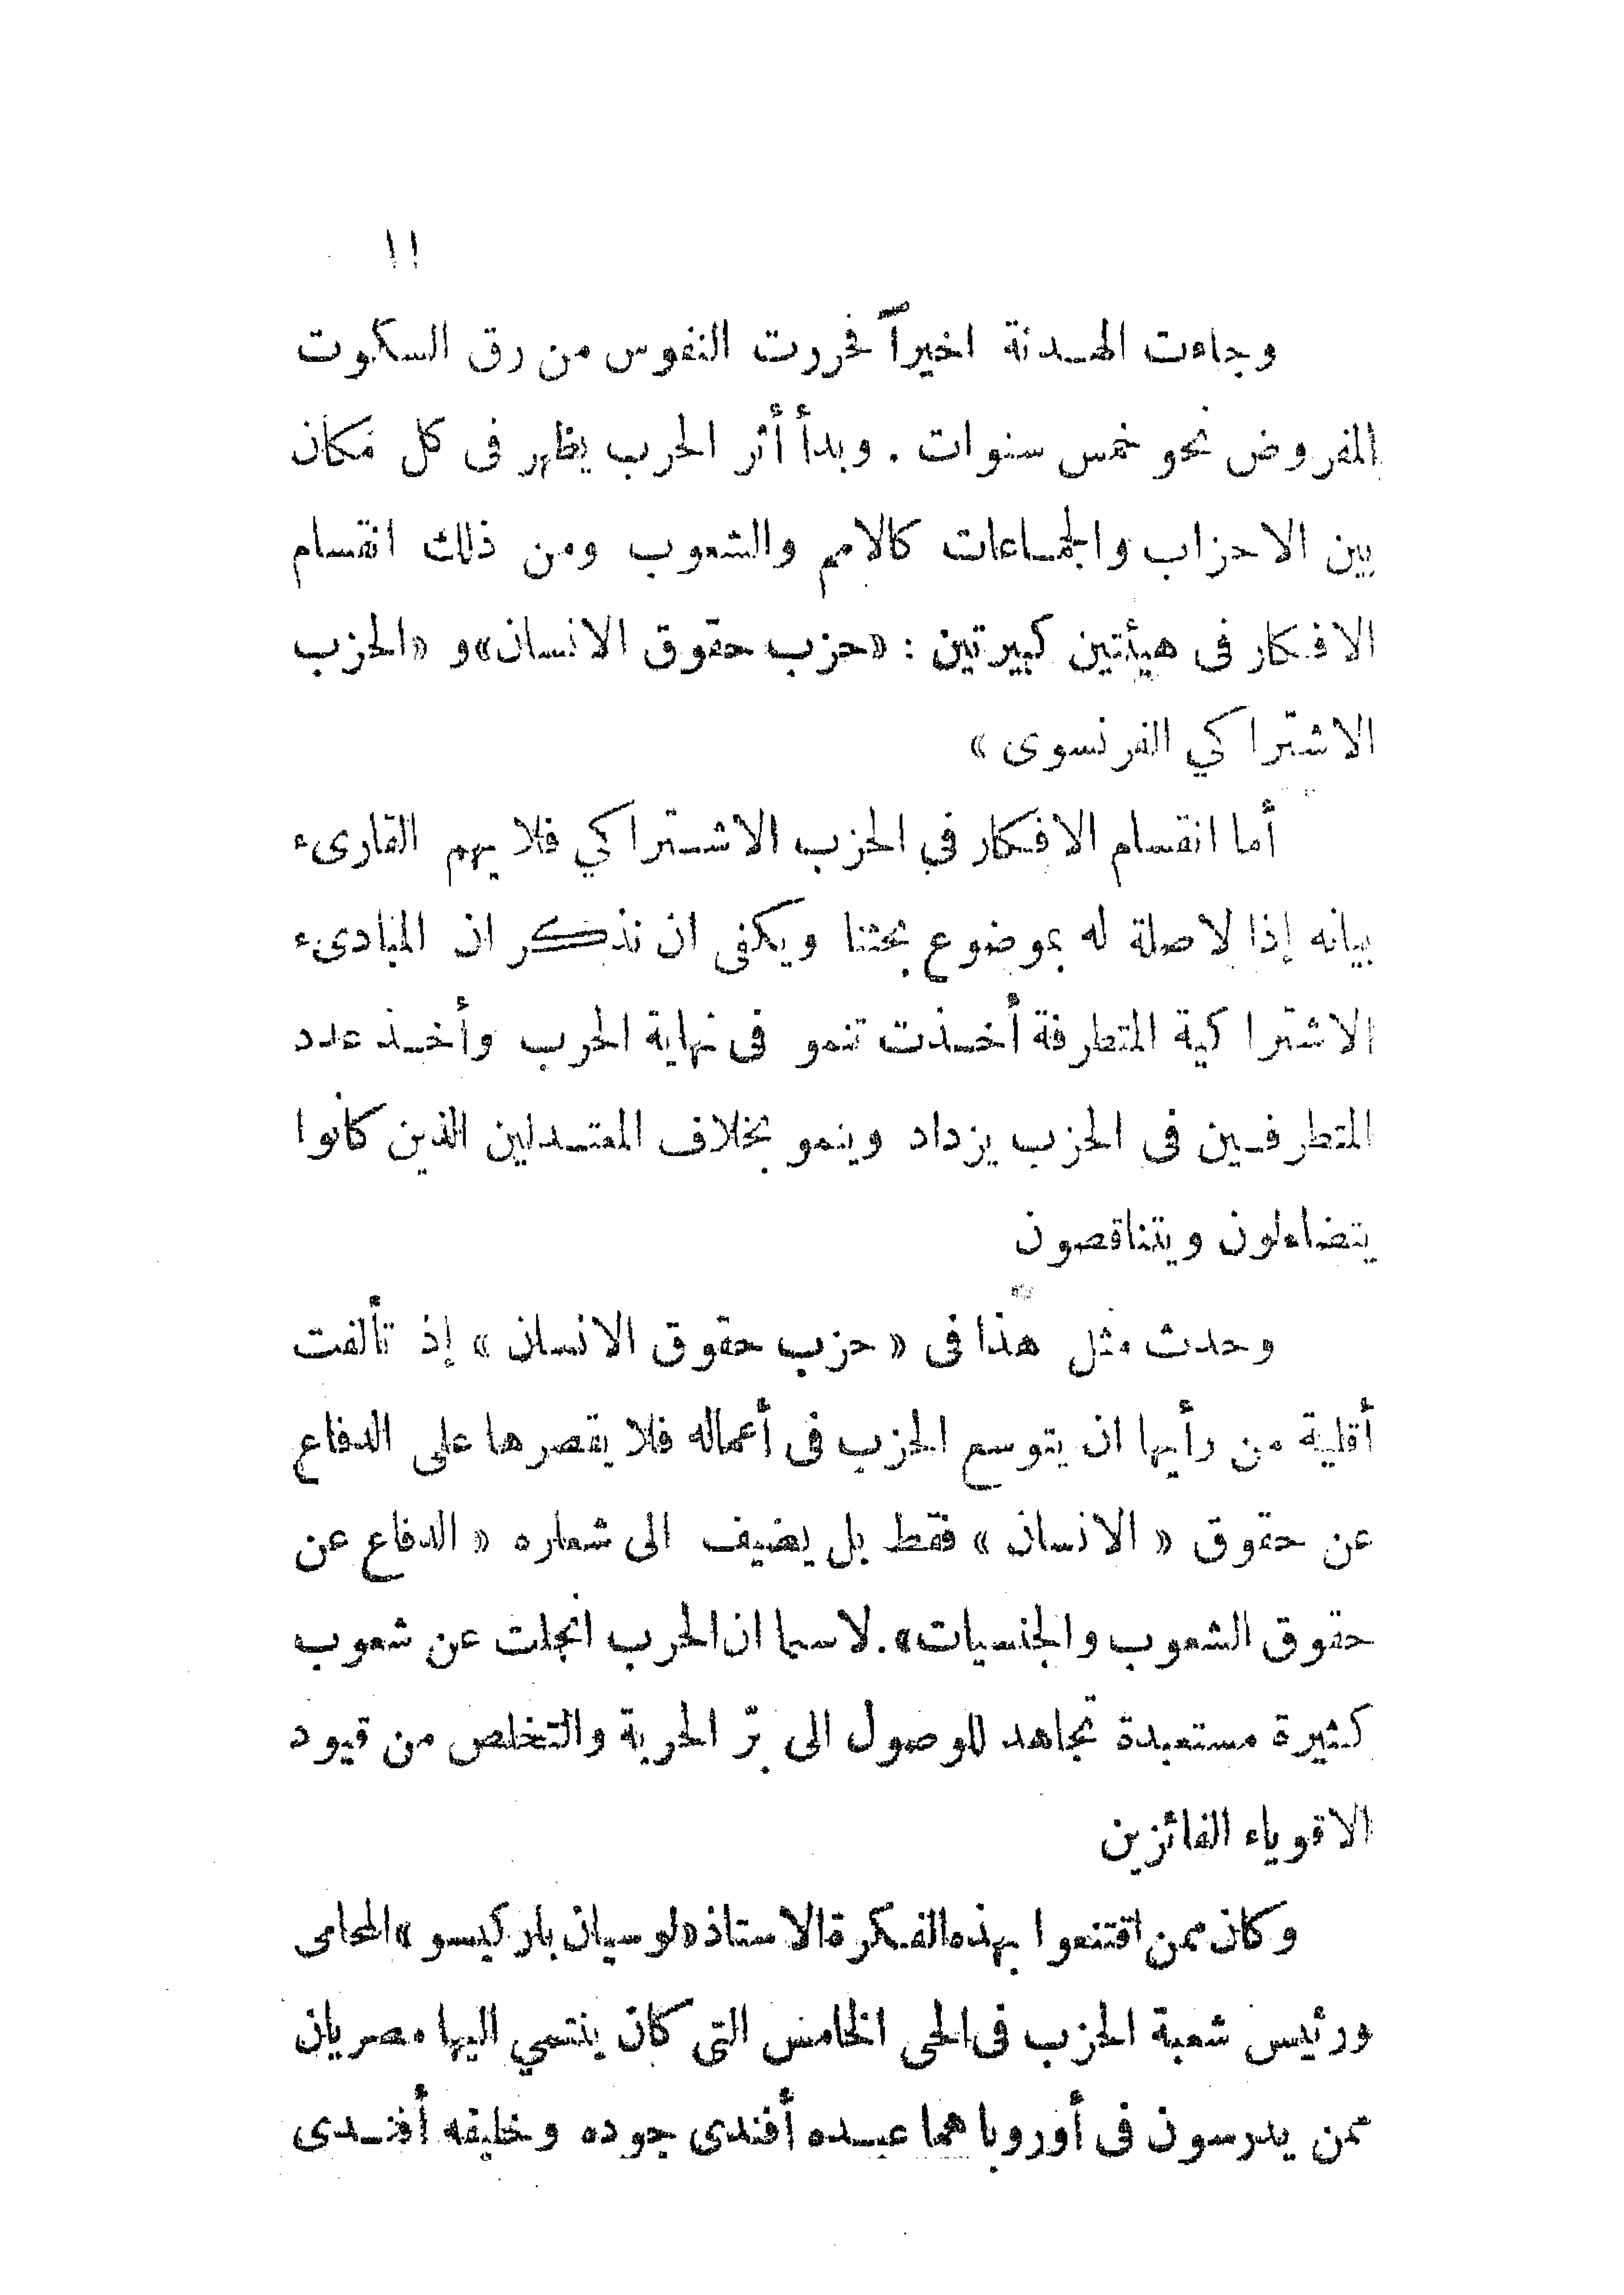 ١١
وجاءت الهدنة اخيراً فحررت النفوس من رق السكوت
المفروض نحو خمس سنوات . وبدأ أثر الحرب يظهر فى كل مكان
بين الاحزاب والجماعات كالامم والشعوب ومن ذلك انقسام
الافكار فى هيئتين كبيرتين : «حزب حقوق الانسان» و «الحزب
الاشتراكي الفرنسوى »
أما انقسام الافكار في الحزب الاشتراكي فلا يهم القارىء
بيانه إذا لاصلة له بموضوع بحثنا ويكفى ان نذكر ان المبادىء
الاشتراكية المتطرفة أخذت تنمو فى نهاية الحرب وأخذ عدد
المتطرفين فى الحزب يزداد وينمو بخلاف المعتدلين الذين كانوا
يتضاءلون ويتناقصون
وحدث مثل هذا فى « حزب حقوق الانسان » إذ تألفت
أقلية من رأيها ان يتوسع الحزب فى أعماله فلا يقصرها على الدفاع
عن حقوق « الانسان » فقط بل يضيف الى شعاره « الدفاع عن
حقوق الشعوب والجنسيات». لاسيما ان الحرب انجلت عن شعوب
كثيرة مستعبدة تجاهد للوصول الى برّ الحرية والتخلص من قيود
الاقوياء الفائزين
وكان ممن اقتنعوا بهذه الفكرة الاستاذ «لوسيان بلركيسو» المحامى
ورئيس شعبة الحزب فى الحى الخامس التى كان ينتمي اليها مصريان
ممن يدرسون فى أوروبا هما عبده أفندى جوده وخليفه أفندى